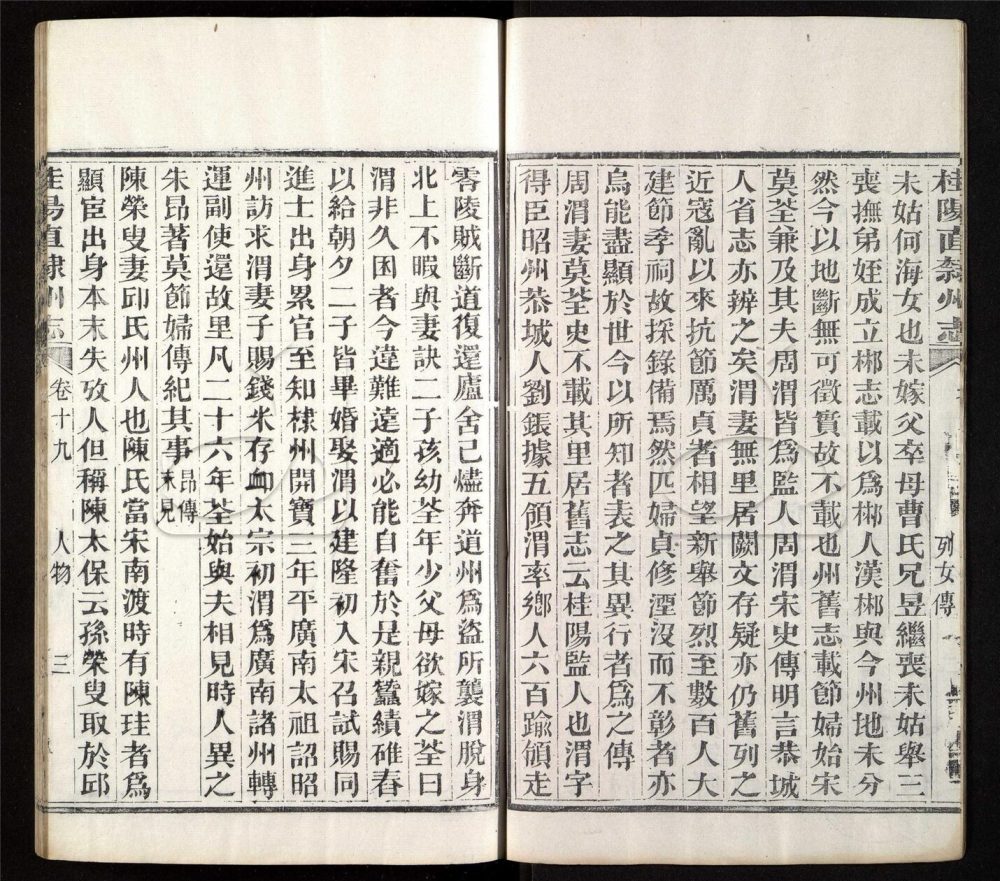 桂陽直隸州志
列女傳
未姑何海女也未嫁父卒母曹氏兄昱繼喪未姑舉三
喪撫弟姪成立郴志載以爲郴人漢郴與今州地未分
然今以地斷無可徵實故不載也州舊志載節婦始宋
莫荃兼及其夫周渭皆爲監人周渭宋史傳明言恭城
人省志亦辨之矣渭妻無里居闕文存疑亦仍舊列之
近寇亂以來抗節厲貞者相望新舉節烈至數百人大
建節孝祠故採錄備焉然匹婦貞修湮沒而不彰者亦
烏能盡顯於世今以所知者表之其異行者爲之傳
周渭妻莫荃史不載其里居舊志云桂陽監人也渭字
得臣昭州恭城人劉鋹據五領渭率鄉人六百踰領走
零陵賊斷道復還廬舍己燼奔道州爲盜所襲渭脫身
北上不暇與妻訣二子孩幼荃年少父母欲嫁之荃曰
渭非久困者今違難遠適必能自奮於是親蠶績碓舂
以給朝夕二子皆畢婚娶渭以建隆初入宋召試賜同
進士出身累官至知棣州開寶三年平廣南太祖詔昭
州訪求渭妻子賜錢米存卹太宗初渭爲廣南諸州轉
運副使還故里凡二十六年荃始與夫相見時人異之
朱昂著莫節婦傳紀其事昂傳未見
陳榮叟妻邱氏州人也陳氏當宋南渡時有陳珪者爲
顯宦出身本末失攷人但稱陳太保云孫榮叟取於邱
桂陽直隸州志
卷十九
人物
三